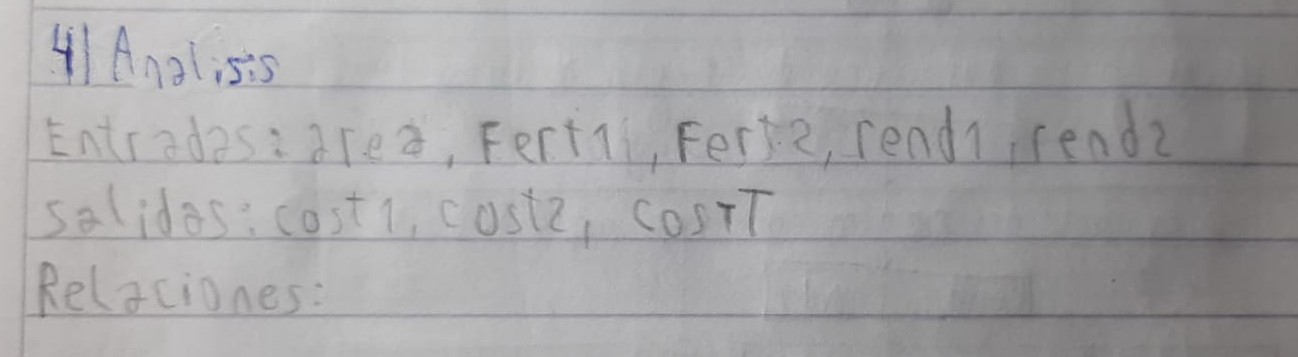 4) Analisis
Entradas: area, Fert1, Fert2, rend1, rend2
Salidas: cost1, cost2, costT
Relaciones: